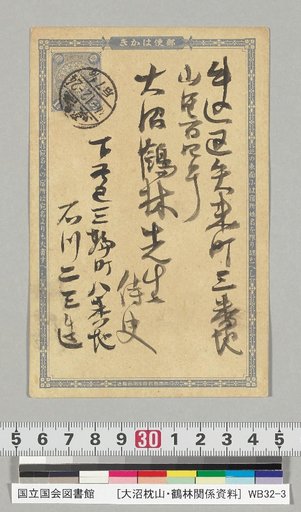 郵便はかき
牛込区矢来町三番地
山里百四号
大沼鶴林先生
侍史
下谷区三輪町八番地
石川二三造
5 6 7 8 9 30 1 2 3 4 5
国立国会図書館 [大沼枕山・鶴林関係資料] WB32-3